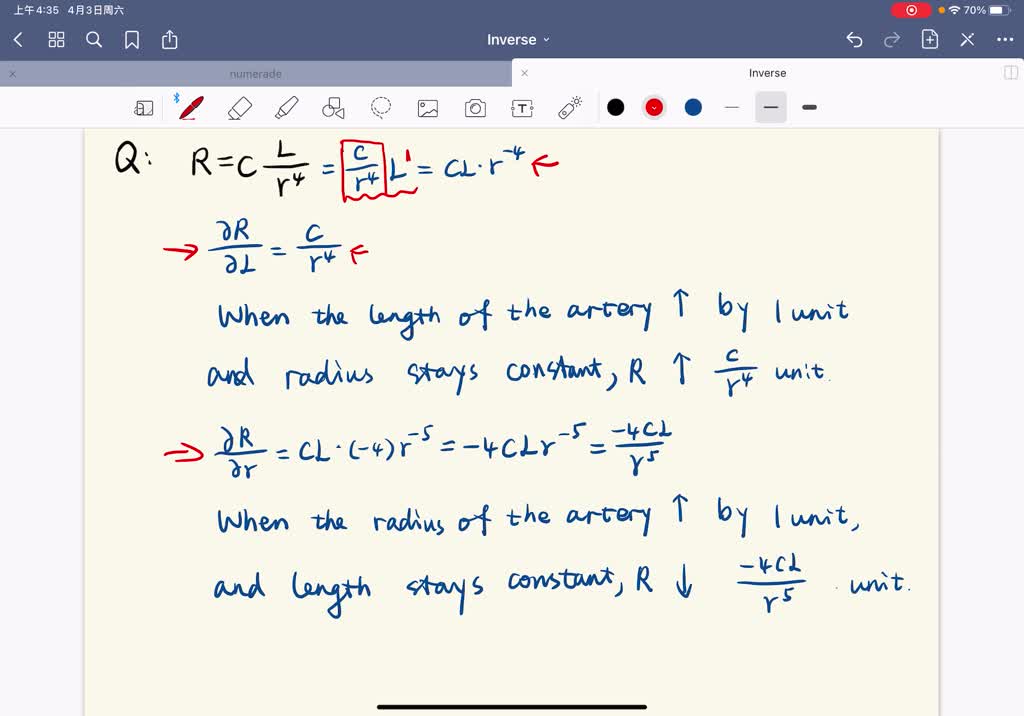 上午4:35 4月3日周六
70%
Inverse
numerade
Inverse
T
Q: R=C L/r⁴ = C/r⁴ L¹ = CL·r⁻⁴ ←
→ ∂R/∂L = C/r⁴ ←
When the length of the artery ↑ by 1 unit
and radius stays constant, R ↑ C/r⁴ unit.
⇒ ∂R/∂r = CL·(-4)r⁻⁵ = -4CLr⁻⁵ = -4CL/r⁵
When the radius of the artery ↑ by 1 unit,
and length stays constant, R ↓ -4CL/r⁵ unit.